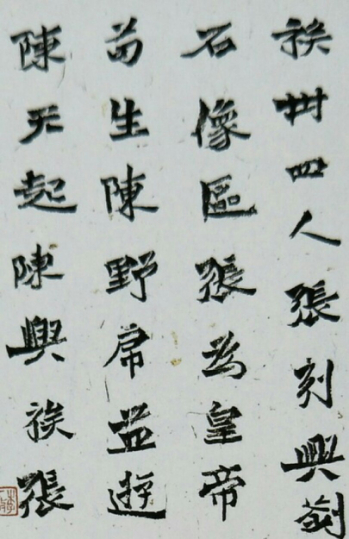 族四人張刻興劉
石像區張為皇帝
苟生陳野益遊
陳天起陳興族張